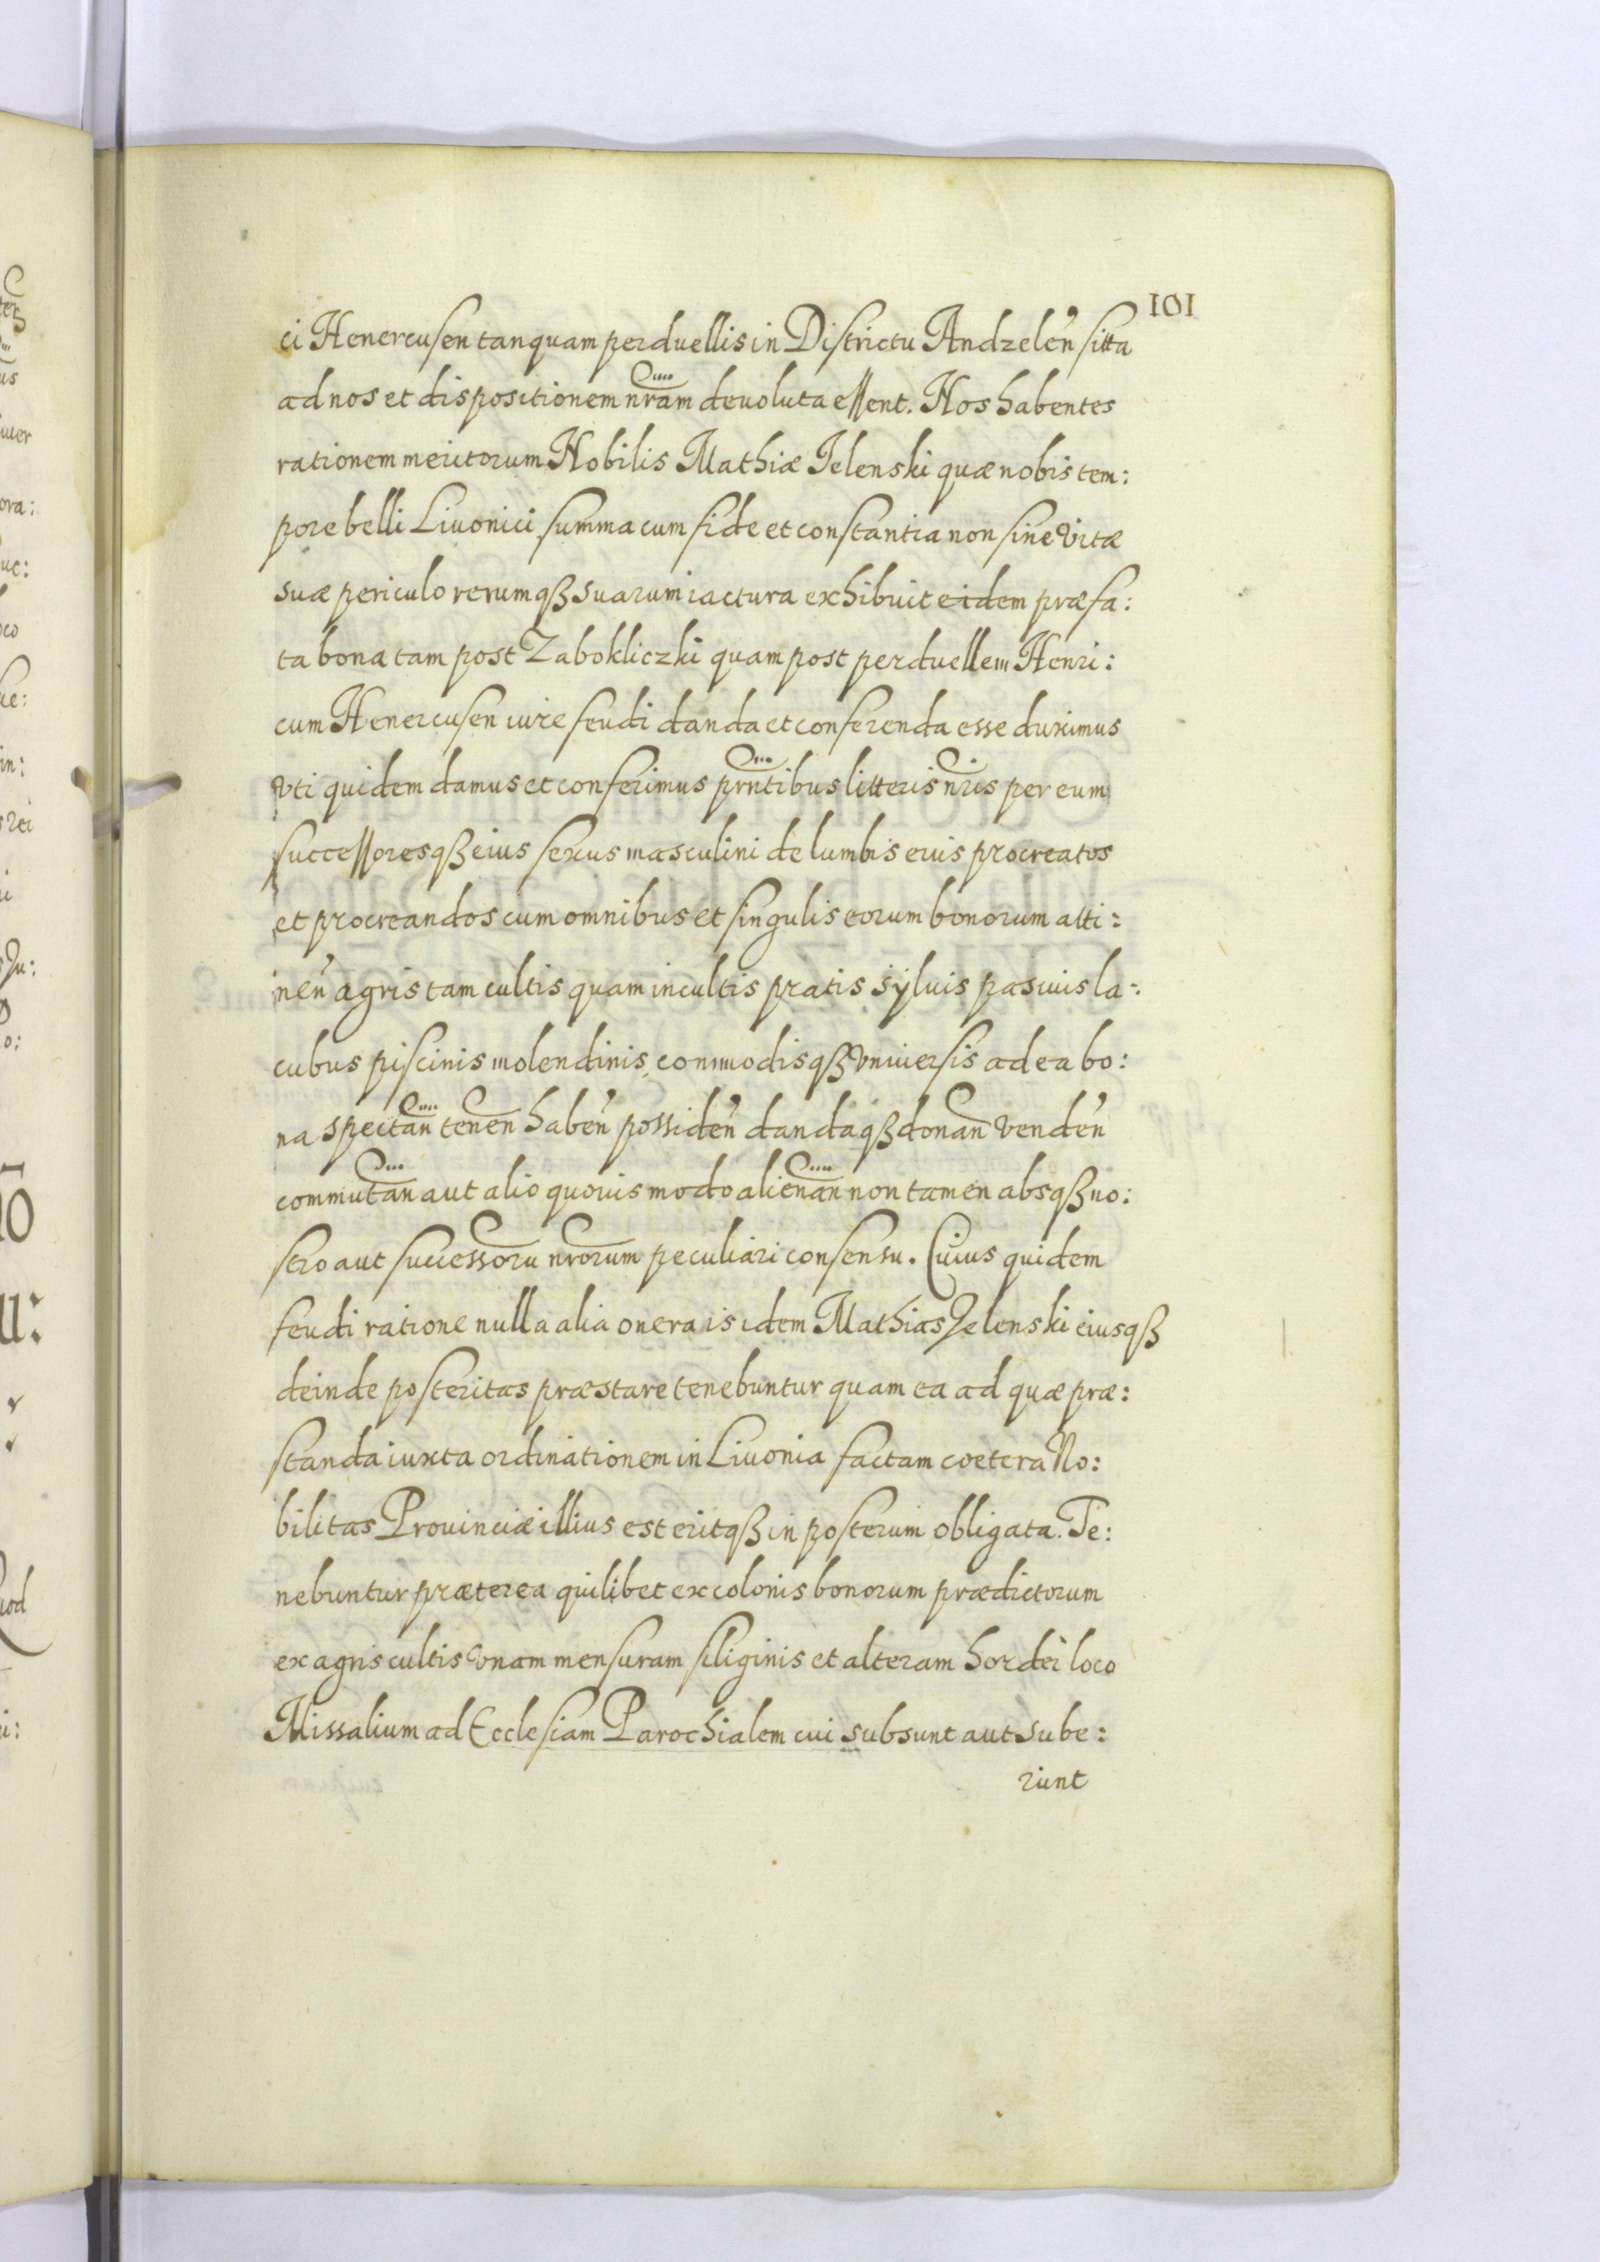 101
ci Henercusen tanquam perduellis in Districtu Andzelen̄ sitta
ad nos et dispositionem nr̄am devoluta essent. Nos habentes
rationem meritorum Nobilis Mathiæ Jelenski quæ nobis tem:
pore belli Livonici summa cum fide et constantia non sine vitæ
suæ periculo rerumqꝫ suarum iactura exhibuit eidem præfa:
ta bona tam post Zabokliczki quam post perduellem Henri:
cum Henercusen iure feudi danda et conferenda esse duximus
vti quidem damus et conferimus prn̄tibus litteris nr̄is per eum
successoresqꝫ eius sexus masculini de lumbis eius procreatos
et procreandos cum omnibus et singulis eorum bonorum atti:
nen̄ agris tam cultis quam incultis pratis sÿluis pascuis la:
cubus piscinis molendinis commodisqꝫ vniuersis ad ea bo:
na spectan̄ tenen̄ haben̄ possiden̄ dandaqꝫ donan̄ venden̄
commutan̄ aut alio quouis modo alienan̄ non tamen absqꝫ no:
stro aut successorū nr̄orum peculiari consensu. Cuius quidem
feudi ratione nulla alia onera is idem Mathias Jelenski eiusqꝫ
deinde posteritas præstare tenebuntur quam ea ad quæ præ:
standa iuxta ordinationem in Livonia factam coetera No:
bilitas Prouinciæ illius est eritqꝫ in posterum obligata. Te:
nebuntur præterea quilibet ex colonis bonorum prædictorum
ex agris cultis vnam mensuram siliginis et alteram hordei loco
Missalium ad Ecclesiam Parochialem cui subsunt aut sube:
runt